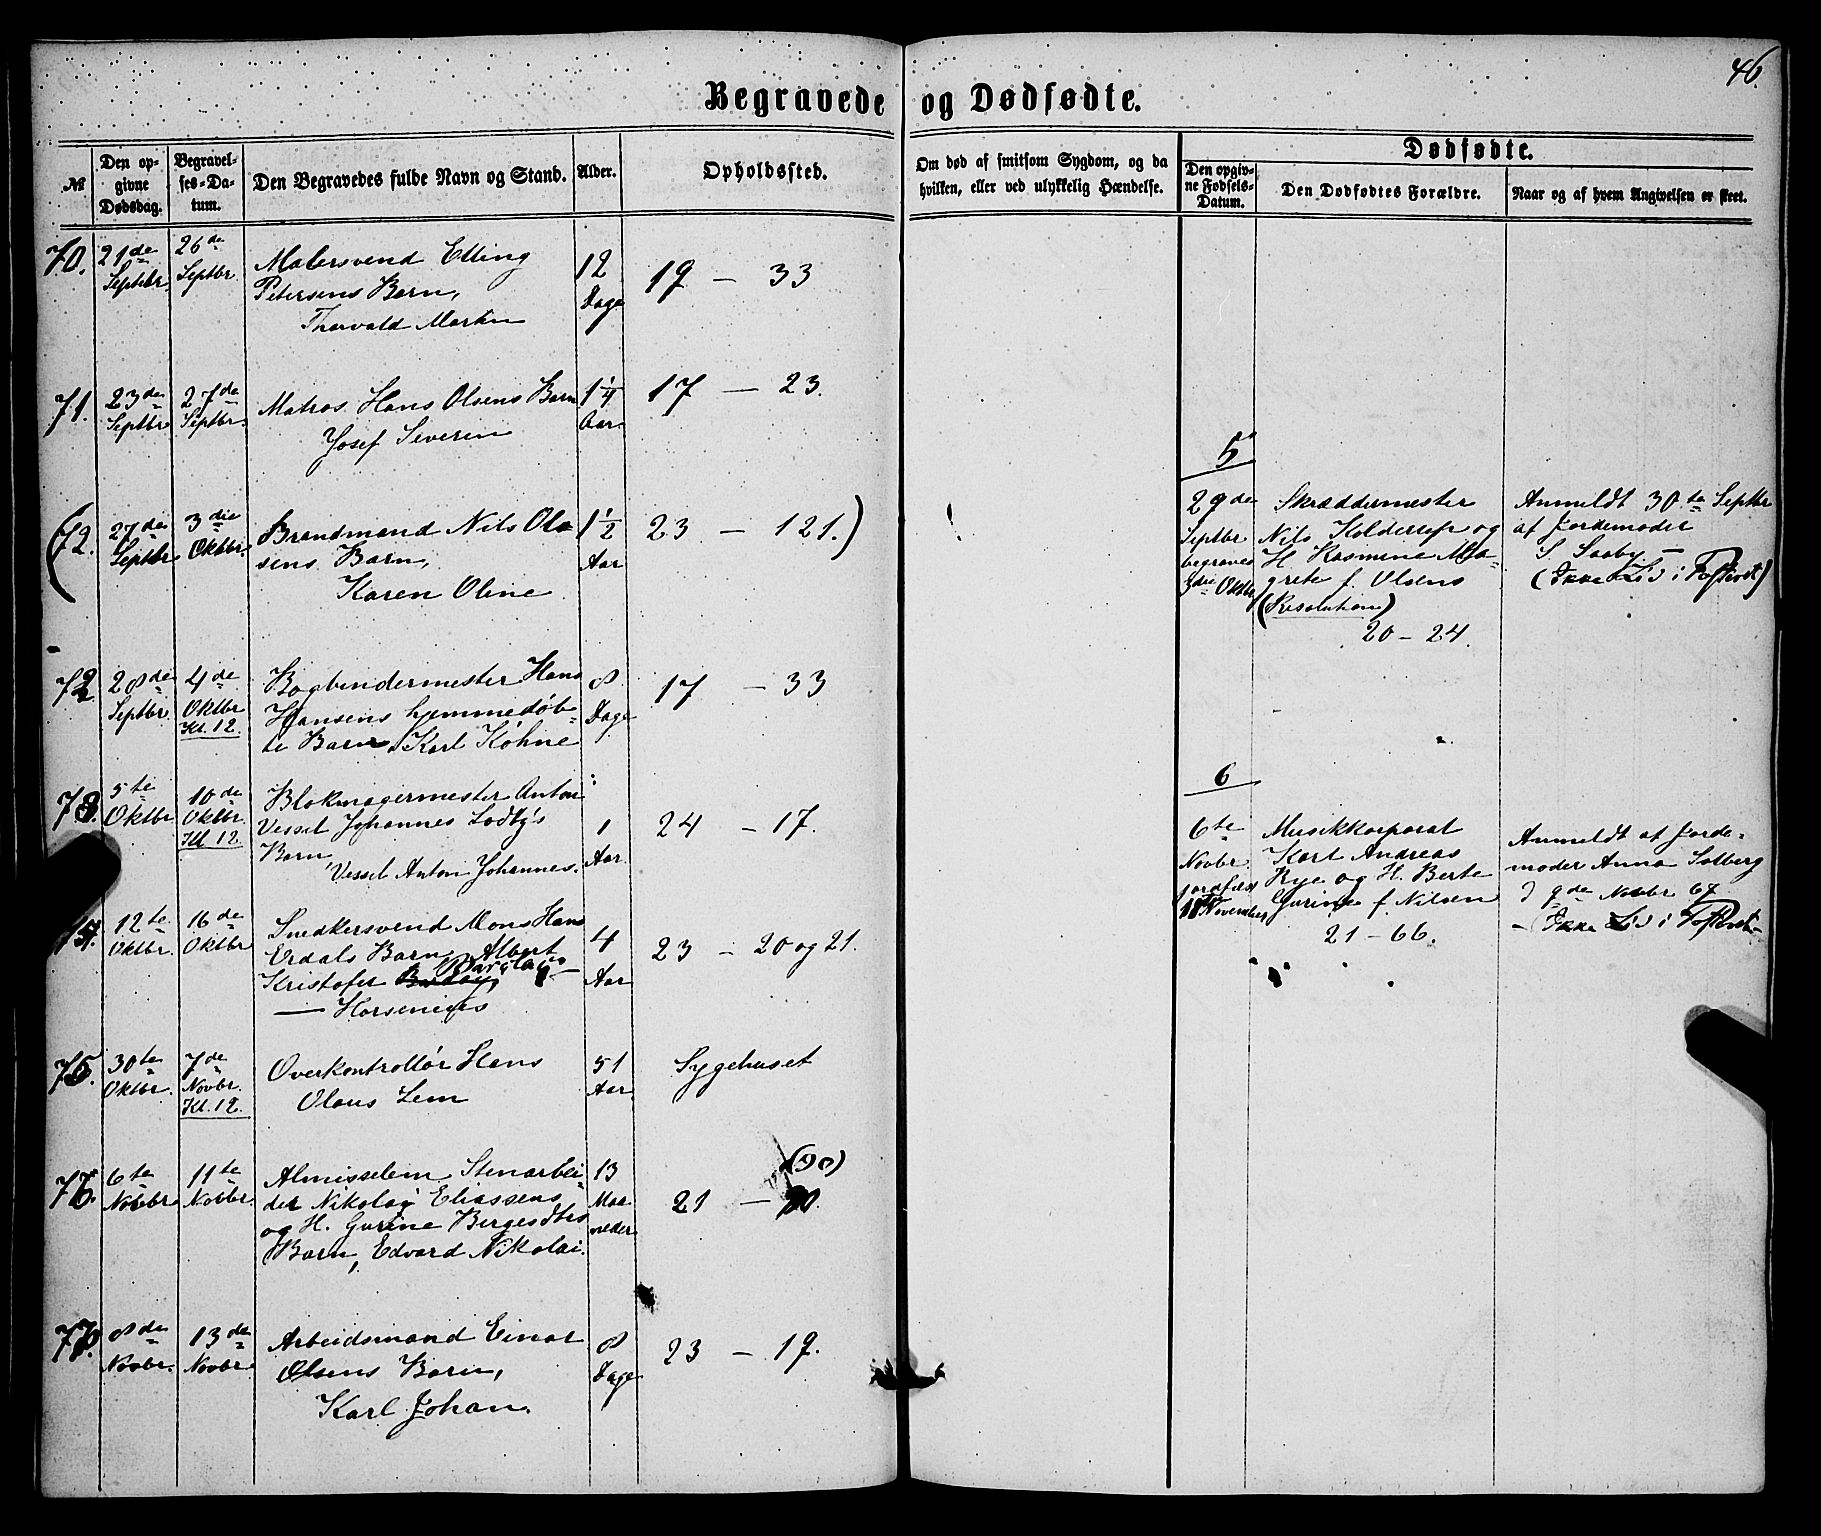 46.
Begravede og Dødfødte.
№
Den opgivne Dødsdag.
Begravelses-Datum.
Den Begravedes fulde Navn og Stand.
Alder.
Opholdssted.
Om død af smitsom Sygdom, og da hvilken, eller ved ulykkelig Hændelse.
Dødfødte.
Den opgivne Fødsels-Datum.
Den Dødfødtes Forældre.
Naar og af hvem Angivelsen er skeet.
70. 21de Septbr. 26de Septbr.
Malersvend Elling
Petersens Barn,
Thorvald Martin
12 Dage
19 — 33
71. 23de Septbr 27de Septbr.
Matros Hans Olsens Barn
Josef Severin
1¼ Aar.
17 — 23.
(72. 27de Septbr 3die Oktbr.
Brandmand Nils Ola
sens Barn,
Karen Oline
1½ Aar
23 — 121.)
72 28de Septbr. 4de Oktbr Kl. 12.
Bogbindermester Hans
Hansens hjemmedøb-
te Barn, Karl Köhne
8 Dage
17 — 33
73. 5te Oktbr 10de Oktbr. Kl 12.
Blokmagermester Anton
Vessel Johannes Lodby's
Barn,
Vessel Anton Johannes.
1 Aar
24 — 17.
12te Oktbr. 16de Oktbr
Snedkersvend Mons Hans
Erdals Barn, Albert
Kristofer
4 Aar
23 — 20 og 21.
75. 30te Oktbr. 7de Novbr. Kl. 12.
Overkontrollör Hans
Olaus Lem
51 Aar
Sygehuset
76. 6te Novbr 11te Novbr.
Almisselem Stenarbei-
der Nikolay Eliassens
og H. Gurine Bergesdtrs
Barn, Edvard Nikolai.
13 Maaneder
21 — (90)
77. 8de Novbr. 13de Novbr.
Arbeidsmand Einar
Olsens Barn,
Karl Johan.
8 Dage
23 — 19.
5
29de Septbr begraves 3die Oktbr
Skræddermester
Nils og
H. Rasmine Ma-
grete f. Olsens
(Resolution)
20 — 24.
Anmeldt 30te Septbr
af Jordemoder
S Saaby —
(Ikke Liv i Fosteret)
6
6te Novbr jordfæst November
Musikkorporal
Karl Andreas
Rye og H. Berte
Gurine f. Nilsen
21 — 66.
Anmeldt af Jorde-
moder Anna Solberg
9de Novbr 67
— (Ikke Liv i Fosteret—